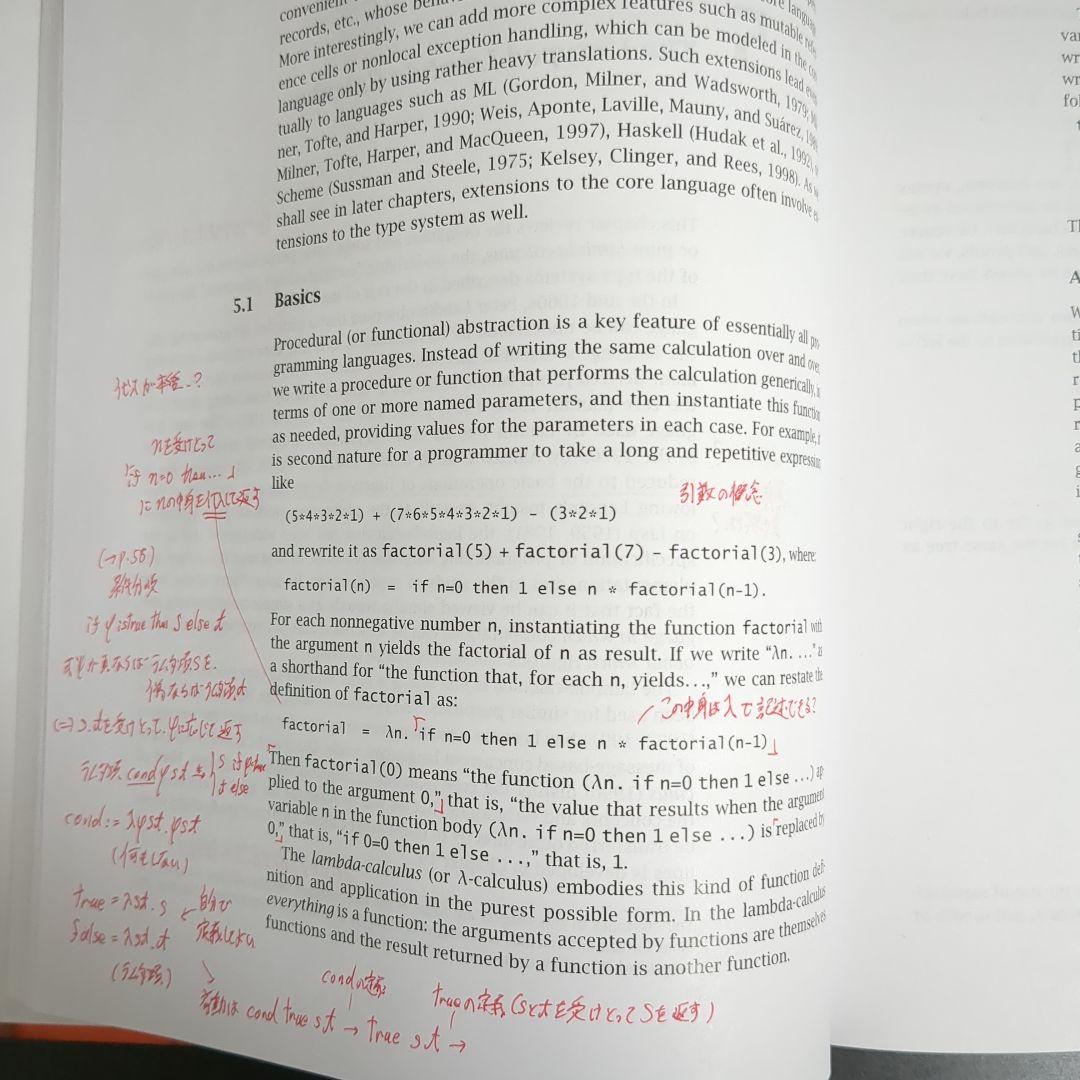 convenient
records, etc., whose
More interestingly, we can add more complex features such as mutable
ence cells or nonlocal exception handling, which can be modeled in the
language only by using rather heavy translations. Such extensions lead
tually to languages such as ML (Gordon, Milner, and Wadsworth, 1979;
ner, Tofte, and Harper, 1990; Weis, Aponte, Laville, Mauny, and Suárez,
Milner, Tofte, Harper, and MacQueen, 1997), Haskell (Hudak et al., 1992),
Scheme (Sussman and Steele, 1975; Kelsey, Clinger, and Rees, 1998). As
shall see in later chapters, extensions to the core language often involve
tensions to the type system as well.
5.1 Basics
Procedural (or functional) abstraction is a key feature of essentially all pro
gramming languages. Instead of writing the same calculation over and over,
we write a procedure or function that performs the calculation generically,
terms of one or more named parameters, and then instantiate this function
as needed, providing values for the parameters in each case. For example,
is second nature for a programmer to take a long and repetitive expression
like
引数の概念
(5*4*3*2*1) + (7*6*5*4*3*2*1) - (3*2*1)
and rewrite it as factorial(5) + factorial(7) - factorial(3), where:
factorial(n) = if n=0 then 1 else n * factorial(n-1).
For each nonnegative number n, instantiating the function factorial with
the argument n yields the factorial of n as result. If we write “λn. ...” as
a shorthand for “the function that, for each n, yields...,” we can restate the
definition of factorial as:
この中身はλで記述できる?
factorial = λn. 「if n=0 then 1 else n * factorial(n-1)」
Then factorial(0) means “the function (λn. if n=0 then 1 else ...) ap
plied to the argument 0,” that is, “the value that results when the argument
variable n in the function body (λn. if n=0 then 1 else ...) is replaced by
0,” that is, “if 0=0 then 1 else ...,” that is, 1.
The lambda-calculus (or λ-calculus) embodies this kind of function defi
nition and application in the purest possible form. In the lambda-calculus
everything is a function: the arguments accepted by functions are themselves
functions and the result returned by a function is another function.
nを受けとって
「if n=0 then... 」
にnの中身を代入して返す
(→p.58)
条件分岐
if φ is true then s else t
偽ならばラムダ項t
(=) s, tを受けとって、φに応じて返す
ラムダ項 cond φ s t
else
cond := λφst. φst
true = λst. s
false = λst. t
(ラムダ項)
condの定義
trueの定義(sとtを受けとってsを返す)
cond true s t → true s t →